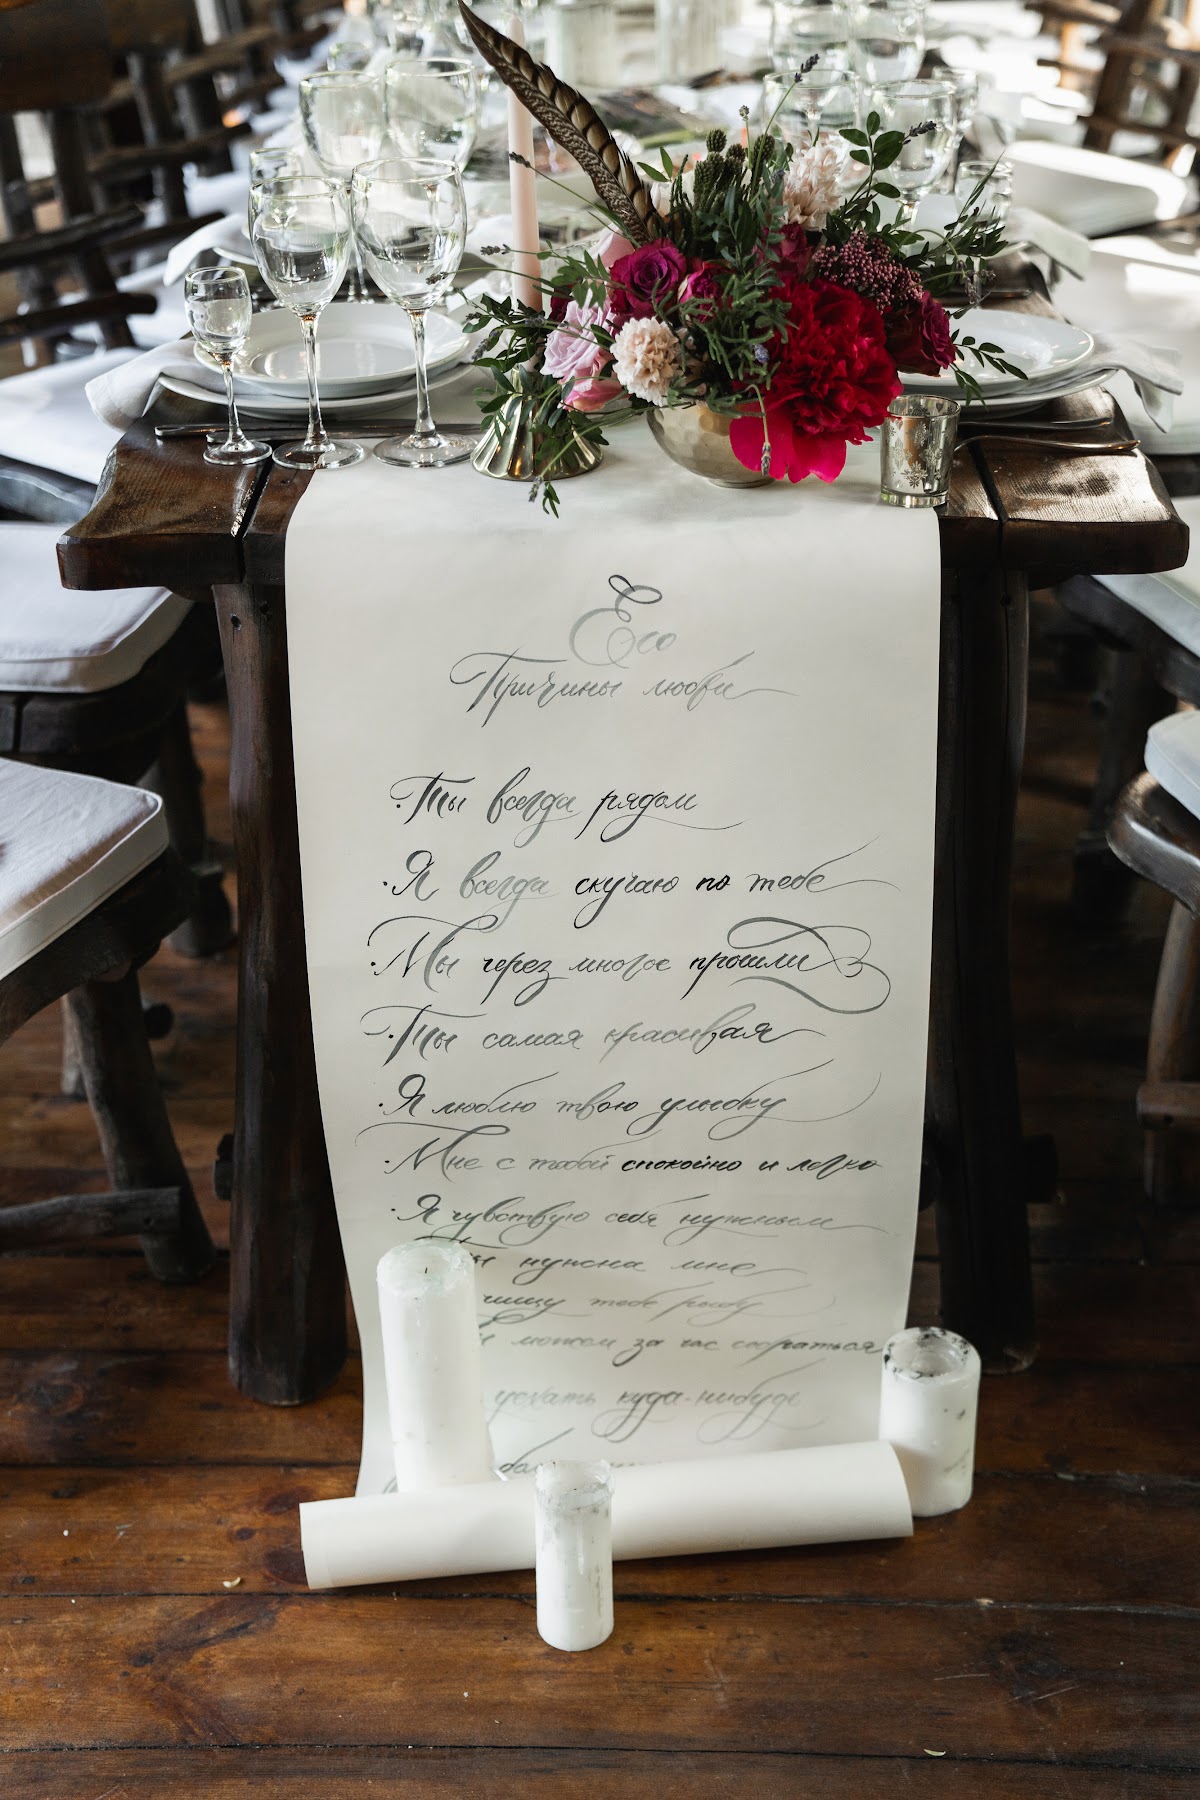 Его
Причины любви
·Ты всегда рядом
·Я всегда скучаю по тебе
·Мы через многое прошли
·Ты самая красивая
·Я люблю твою улыбку
·Мне с тобой спокойно и легко
·Я чувствую себя нужным
нужна мне
тебе рыбу
можем за час собраться
уехать куда-нибудь